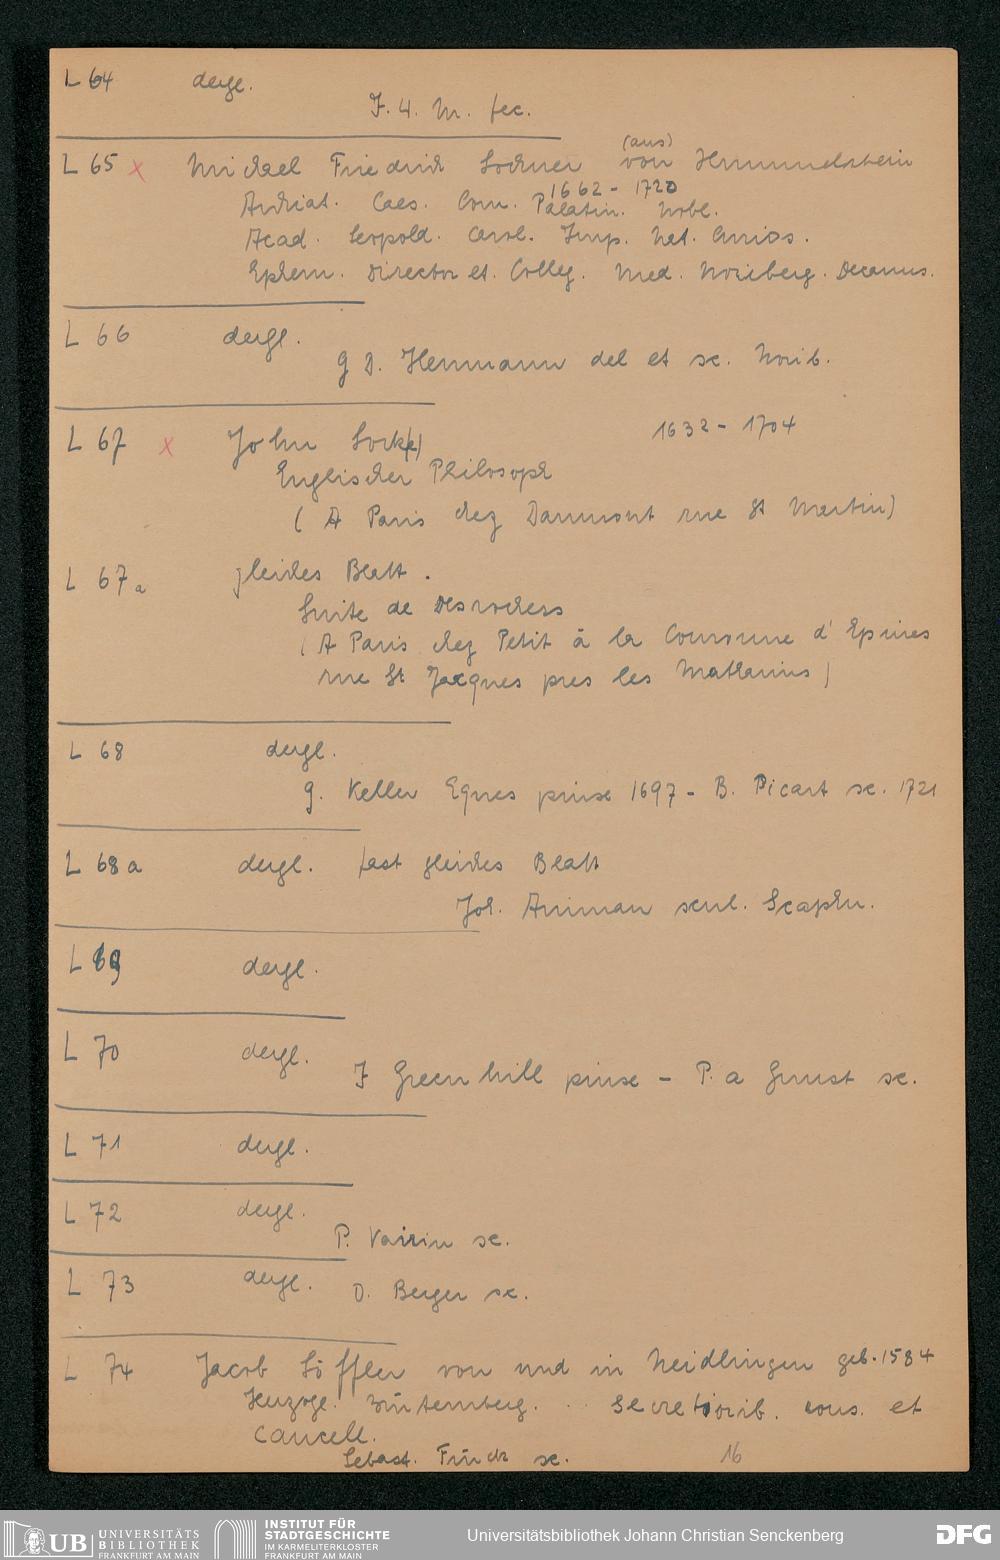 L 64 dergl.
J. 4. M. fec.
L 65 x Michael Friedrich Lochner (aus) von Hummelstein
1662 - 1720
Archiat. Caes. Com. Palatin. Nobl.
Acad. Leopold. Carol. Imp. Nat. Curios.
Ephem. Director et. Colleg. Med. Noriberg. Decanus.
L 66 dergl.
G D. Heumann del et sc. Norib.
L 67 x John Lock(e) 1632 - 1704
Englischer Philosoph
( A Paris chez Daumont rue St Martin)
L 67a gleiches Blatt.
Suite de Desrochers
( A Paris chez Petit à la Couronne d' Epines
rue St Jacques pres les Mathurins )
L 68 dergl.
G. Keller Eques pinx 1697 - B. Picart sc. 1721
L 68a dergl. fast gleiches Blatt
Joh. Animan sculp. Scaphu.
L 69 dergl.
L 70 dergl.
J Greenhill pinx - P. a Gunst sc.
L 71 dergl.
L 72 dergl.
P. Vairin sc.
L 73 dergl. D. Berger sc.
L 74 Jacob Löffler von und in Neidlingen geb. 1584
Herzogl. Würtemberg. Secretiorib. cons. et
Cancell.
Sebast. Furck sc. 16
UB UNIVERSITÄTS
BIBLIOTHEK
FRANKFURT AM MAIN
INSTITUT FÜR
STADTGESCHICHTE
IM KARMELITERKLOSTER
FRANKFURT AM MAIN
Universitätsbibliothek Johann Christian Senckenberg
DFG